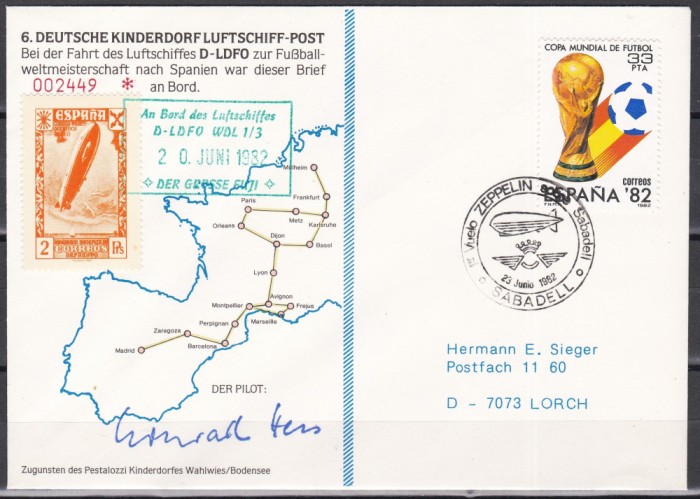 6. DEUTSCHE KINDERDORF LUFTSCHIFF-POST
Bei der Fahrt des Luftschiffes D-LDFO zur Fußball-
weltmeisterschaft nach Spanien war dieser Brief
002449 * an Bord.
ESPAÑA
2 CORREOS Pts
An Bord des Luftschiffes
D-LDFO WDL 1/3
20. JUNI 1982
DER GROSSE FUJI
Mülheim
Frankfurt
Paris
Metz
Karlsruhe
Orleans
Dijon
Basel
Lyon
Avignon
Montpellier
Frejus
Marseille
Perpignan
Zaragoza
Barcelona
Madrid
DER PILOT:
Konrad Hess
Zugunsten des Pestalozzi Kinderdorfes Wahlwies/Bodensee
COPA MUNDIAL DE FUTBOL
33
PTA
correos
ESPAÑA '82
F.N.M.T. 1982
Vuelo ZEPPELIN Sabadell
23 Junio 1982
SABADELL
Hermann E. Sieger
Postfach 11 60
D - 7073 LORCH